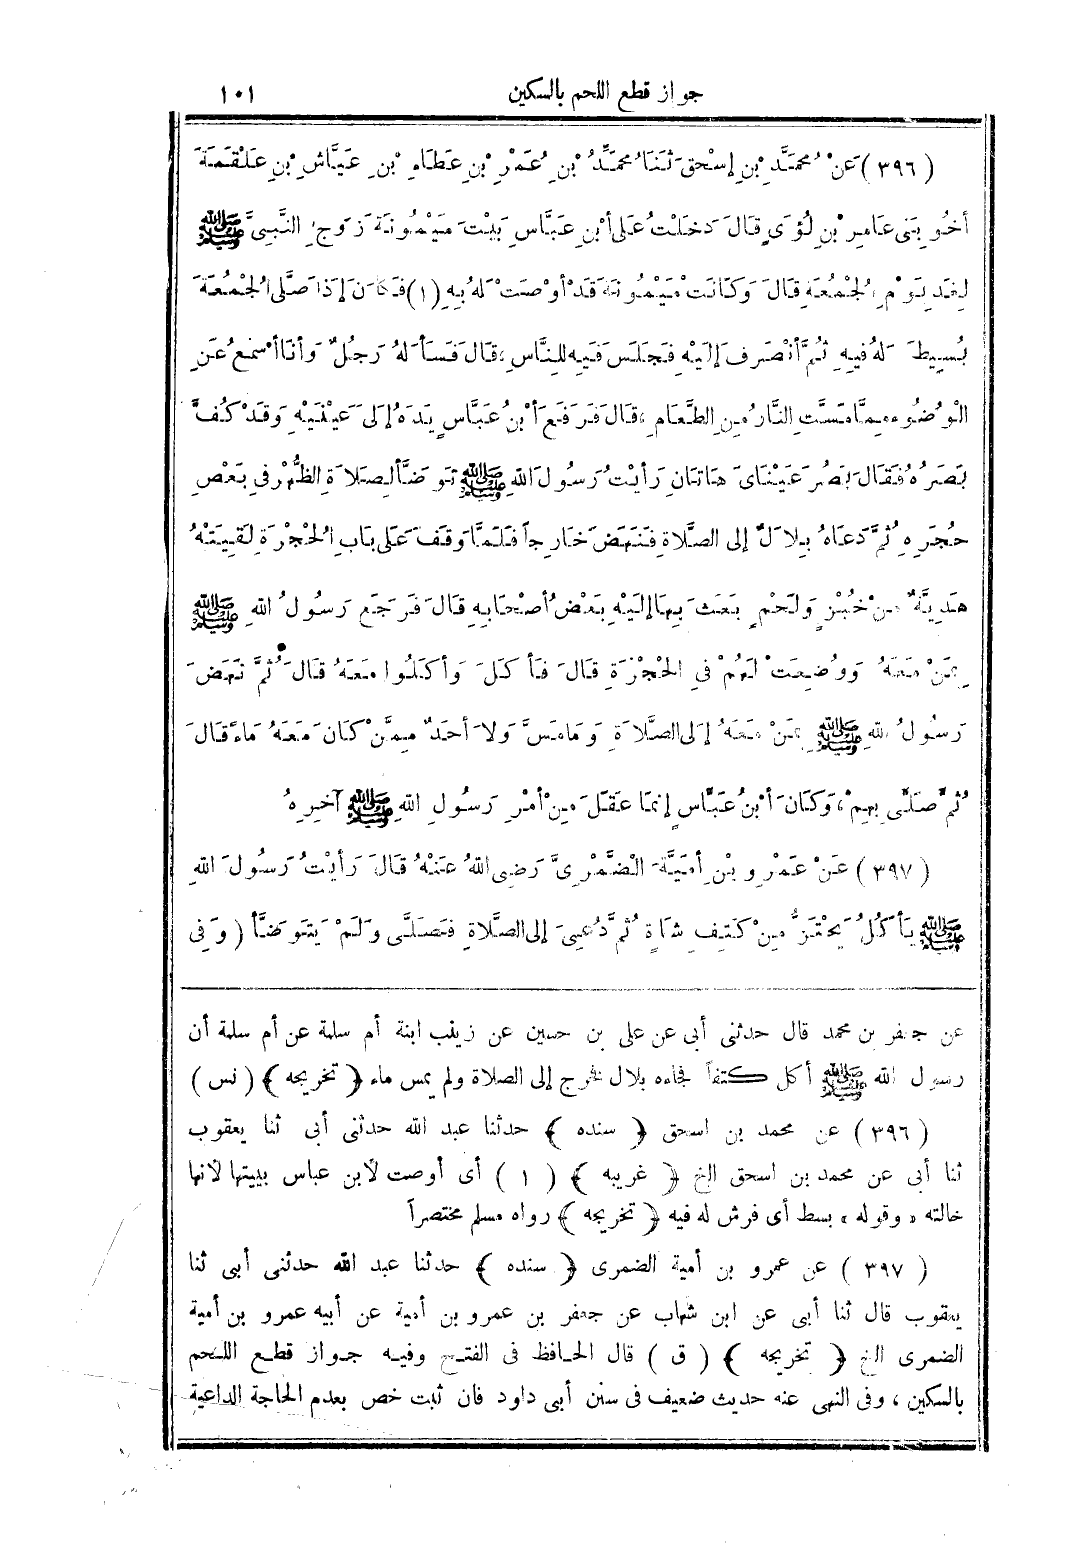 جواز قطع اللحم بالسكين ١٠١
(٣٩٦) عَنْ مُحَمَّدِ بْنِ إِسْحٰقَ ثَنَا مُحَمَّدُ بْنُ عُمَرَ بْنِ عَطَاءِ بْنِ عَيَّاشِ بْنِ عَلْقَمَةَ
أَخُو بَنِى عَامِرِ بْنِ لُؤَىٍّ قَالَ دَخَلْتُ عَلَى أبْنِ عَبَّاسٍ بَيْتَ مَيْمُونَةَ زَوْجِ النَّبِىِّ ﷺ
لِغَدِ يَوْمِ الْجُمُعَةِ قَالَ وَكَانَتْ مَيْمُونَةُ قَدْ أَوْصَتْ لَهُ بِهِ (١) فَكَانَ إِذَا صَلَّى الْجُمُعَةَ
بُسِطَ لَهُ فِيهِ ثُمَّ أنْصَرَفَ إِلَيْهِ فَجَلَسَ فِيهِ لِلنَّاسِ، قَالَ فَسَأَلَهُ رَجُلٌ وَأنَا أَسْمَعُ عَنِ
الْوُضُوءِ مِمَّا مَسَّتِ النَّارُ مِنِ الطَّعَامِ، قَالَ فَرَفَعَ أبْنُ عَبَّاسٍ يَدَهُ إِلَى عَيْنَيْهِ وَقَدْ كُفَّ
بَصَرُهُ فَقَالَ بَصُرَ عَيْنَاىَ هَاتَانِ رَأَيْتُ رَسُولَ اللهِ ﷺ تَوَضَّأَ لِصَلَاةِ الظُّهْرِ فِى بَعْضِ
حُجَرِهِ ثُمَّ دَعَاهُ بِلَالٌ إِلَى الصَّلَاةِ فَنَهَضَ خَارِجاً فَلَمَّا وَقَفَ عَلَى بَابِ الْحُجْرَةِ لَقِيَتْهُ
هَدِيَّةٌ مِنْ خُبْزٍ وَلَحْمٍ بَعَثَ بِهَا إِلَيْهِ بَعْضُ أَصْحَابِهِ قَالَ فَرَجَعَ رَسُولُ اللهِ ﷺ
بِمَنْ مَعَهُ وَوُضِعَتْ لَهُمْ فِى الْحُجْرَةِ قَالَ فَأَكَلَ وَأَكَلُوا مَعَهُ قَالَ ثُمَّ نَهَضَ
رَسُولُ اللهِ ﷺ بِمَنْ مَعَهُ إِلَى الصَّلَاةِ وَمَا مَسَّ وَلَا أَحَدٌ مِمَّنْ كَانَ مَعَهُ مَاءً قَالَ
ثُمَّ صَلَّى بِهِمْ، وَكَانَ أبْنُ عَبَّاسٍ إِنَّمَا عَقَلَ مِنْ أَمْرِ رَسُولِ اللهِ ﷺ آخِرِهُ
(٣٩٧) عَنْ عَمْرِو بْنِ أُمَيَّةَ الضَّمْرِىِّ رَضِى اللهُ عَنْهُ قَالَ رَأَيْتُ رَسُولَ اللهِ
ﷺ يَأْكُلُ يَحْتَزُّ مِنْ كَتِفِ شَاةٍ ثُمَّ دُعِىَ إِلَى الصَّلَاةِ فَصَلَّى وَلَمْ يَتَوَضَّأْ (وَفِى
عن جعفر بن محمد قال حدثنى أبى عن على بن حسين عن زينب ابنة أم سلمة عن أم سلمة أن
رسول الله ﷺ أكل كتفاً فجاءه بلال فخرج إلى الصلاة ولم يمس ماء ﴿ تخريجه ﴾ (نس)
(٣٩٦) عن محمد بن اسحق ﴿ سنده ﴾ حدثنا عبد الله حدثنى أبى ثنا يعقوب
ثنا أبى عن محمد بن اسحق الخ ﴿ غريبه ﴾ (١) أى أوصت لابن عباس ببيتها لأنها
خالته « وقوله » بسط أى فرش له فيه ﴿ تخريجه ﴾ رواه مسلم مختصراً
(٣٩٧) عن عمرو بن أمية الضمرى ﴿ سنده ﴾ حدثنا عبد الله حدثنى أبى ثنا
يعقوب قال ثنا أبى عن ابن شهاب عن جعفر بن عمرو بن أمية عن أبيه عمرو بن أمية
الضمرى الخ ﴿ تخريجه ﴾ (ق) قال الحافظ فى الفتح وفيه جواز قطع اللحم
بالسكين ، وفى النهى عنه حديث ضعيف فى سنن أبى داود فان ثبت خص بعدم الحاجة الداعية